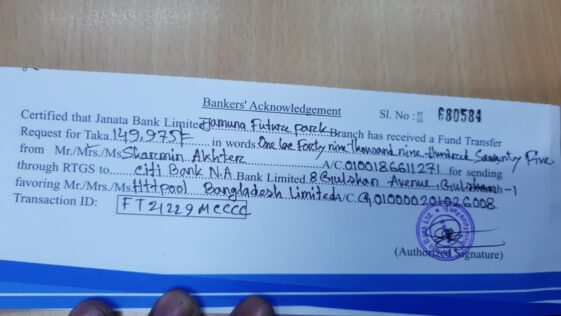 Bankers' Acknowledgement
Sl. No : 680584
Certified that Janata Bank Limited Jamuna Future park Branch has received a Fund Transfer
Request for Taka. 149,975/= in words One lac Forty nine thousand nine hundred Seventy Five
from Mr./Mrs./Ms Sharmin Akhter A/C. 0100186611271 for sending
through RTGS to Citi Bank N.A Bank Limited. 8 Gulshan Avenue, Gulshan-1
favoring Mr./Mrs./Ms. Httpool Bangladesh Limited A/C. G010000201026008
Transaction ID: FT21229MCCCC
(Authorized Signature)